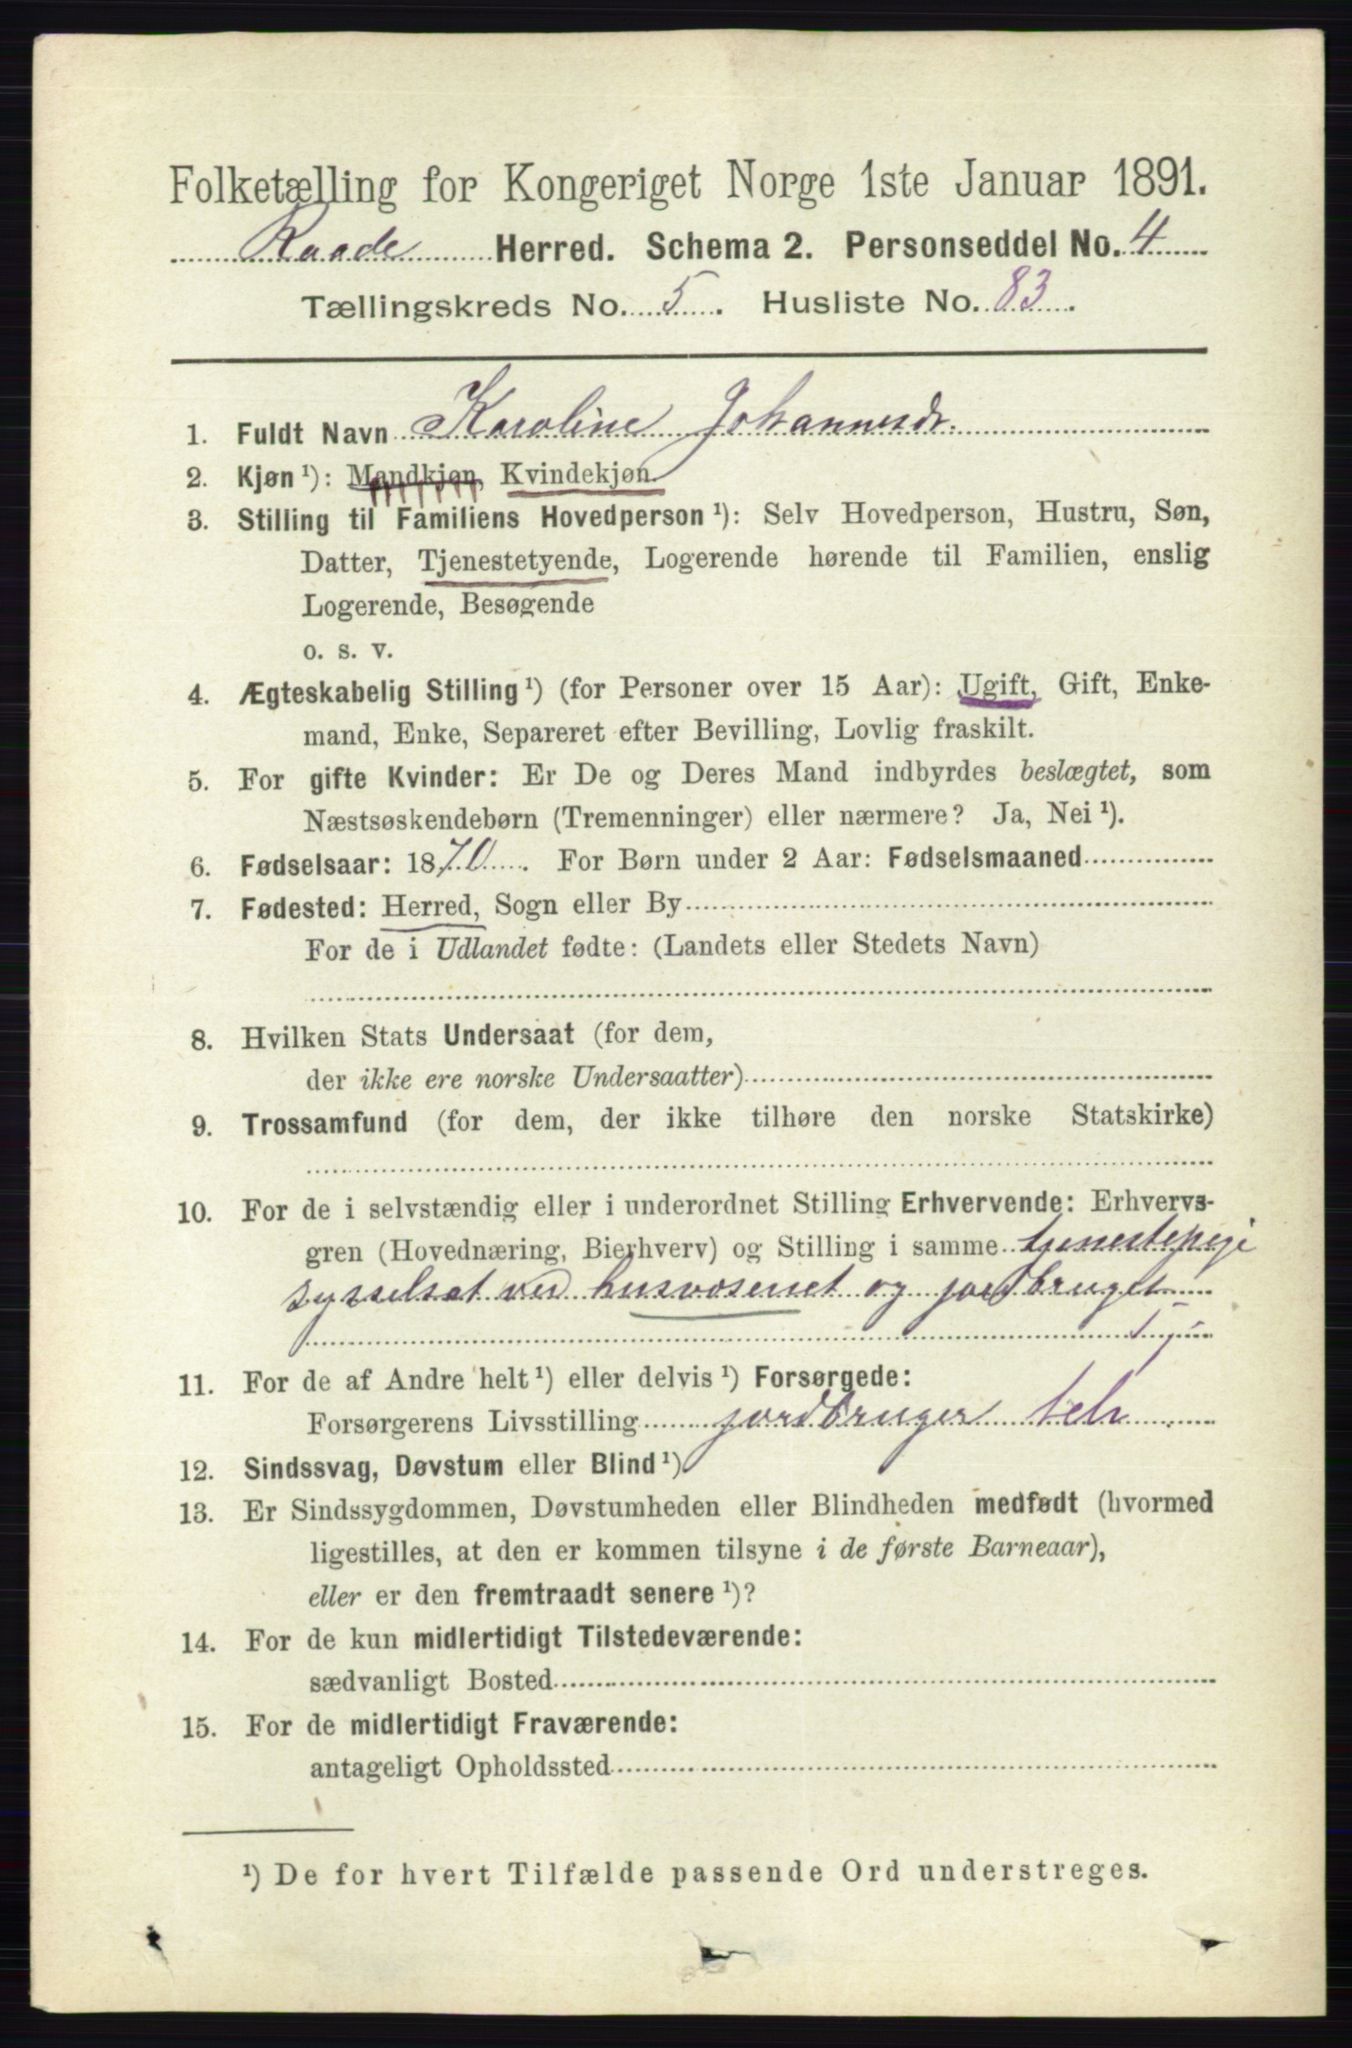 Folketælling for Kongeriget Norge 1ste Januar 1891.
Raade Herred. Schema 2. Personseddel No. 4
Tællingskreds No. 5. Husliste No. 83.
1. Fuldt Navn Karoline Johannesdr.
2. Kjøn ¹): Mandkjøn, Kvindekjøn.
3. Stilling til Familiens Hovedperson ¹): Selv Hovedperson, Hustru, Søn,
Datter, Tjenestetyende, Logerende hørende til Familien, enslig
Logerende, Besøgende
o. s. v.
4. Ægteskabelig Stilling ¹) (for Personer over 15 Aar): Ugift, Gift, Enke-
mand, Enke, Separeret efter Bevilling, Lovlig fraskilt.
5. For gifte Kvinder: Er De og Deres Mand indbyrdes beslægtet, som
Næstsøskendebørn (Tremenninger) eller nærmere? Ja, Nei ¹).
6. Fødselsaar: 1870. For Børn under 2 Aar: Fødselsmaaned
7. Fødested: Herred, Sogn eller By
For de i Udlandet fødte: (Landets eller Stedets Navn)
8. Hvilken Stats Undersaat (for dem,
der ikke ere norske Undersaatter)
9. Trossamfund (for dem, der ikke tilhøre den norske Statskirke)
10. For de i selvstændig eller i underordnet Stilling Erhvervende: Erhvervs-
gren (Hovednæring, Bierhverv) og Stilling i samme tjenestepige
sysselsat ved husvæsenet og jordbruget
11. For de af Andre helt ¹) eller delvis ¹) Forsørgede:
Forsørgerens Livsstilling jordbruger selv
12. Sindssvag, Døvstum eller Blind ¹)
13. Er Sindssygdommen, Døvstumheden eller Blindheden medfødt (hvormed
ligestilles, at den er kommen tilsyne i de første Barneaar),
eller er den fremtraadt senere ¹)?
14. For de kun midlertidigt Tilstedeværende:
sædvanligt Bosted
15. For de midlertidigt Fraværende:
antageligt Opholdssted
¹) De for hvert Tilfælde passende Ord understreges.